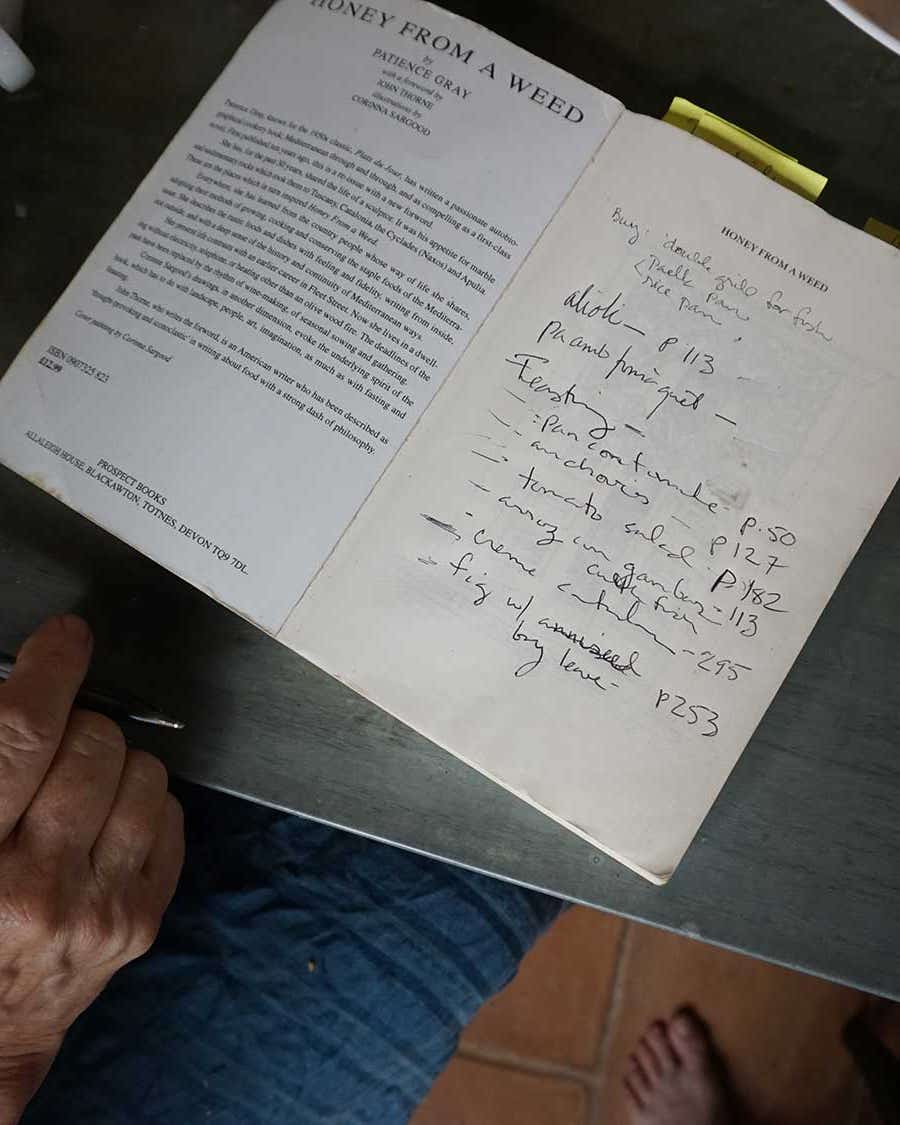 HONEY FROM A WEED
by
PATIENCE GRAY
with a foreword by
JOHN THORNE
illustrations by
CORINNA SARGOOD
Patience Gray, known for the 1950s classic, Plats du Jour, has written a passionate autobio-
graphical cookery book, Mediterranean through and through, and as compelling as a first-class
novel. First published ten years ago, this is a re-issue with a new foreword.
She has, for the past 30 years, shared the life of a sculptor. It was his appetite for marble
and sedimentary rocks which took them to Tuscany, Catalonia, the Cyclades (Naxos) and Apulia.
These are the places which in turn inspired Honey From a Weed.
Everywhere, she has learned from the country people whose way of life she shares,
adopting their methods of growing, cooking and conserving the staple foods of the Mediterra-
nean. She describes the rustic foods and dishes with feeling and fidelity, writing from inside,
not outside, and with a deep sense of the history and continuity of Mediterranean ways.
Her present life contrasts with an earlier career in Fleet Street. Now she lives in a dwell-
ing without electricity, telephone, or heating other than an olive wood fire. The deadlines of the
past have been replaced by the rhythm of wine-making, of seasonal sowing and gathering.
Corinna Sargood's drawings, in another dimension, evoke the underlying spirit of the
book, which has to do with landscape, people, art, imagination, as much as with fasting and
feasting.
John Thorne, who writes the foreword, is an American writer who has been described as
'thought-provoking and iconoclastic' in writing about food with a strong dash of philosophy.
Cover painting by Corinna Sargood
ISBN 0907325 823
£12.99
PROSPECT BOOKS
ALLALEIGH HOUSE, BLACKAWTON, TOTNES, DEVON TQ9 7DL.
HONEY FROM A WEED
Buy: double grill for fish
rice pan
alioli – p 113
pa amb
Feasting –
– pan con tomate – p. 50
– anchovies – p 127
– tomato salad – p. 182
– arroz con gambas – 113
– creme catalan – 295
– fig w/ aniseed
bay leave – p 253